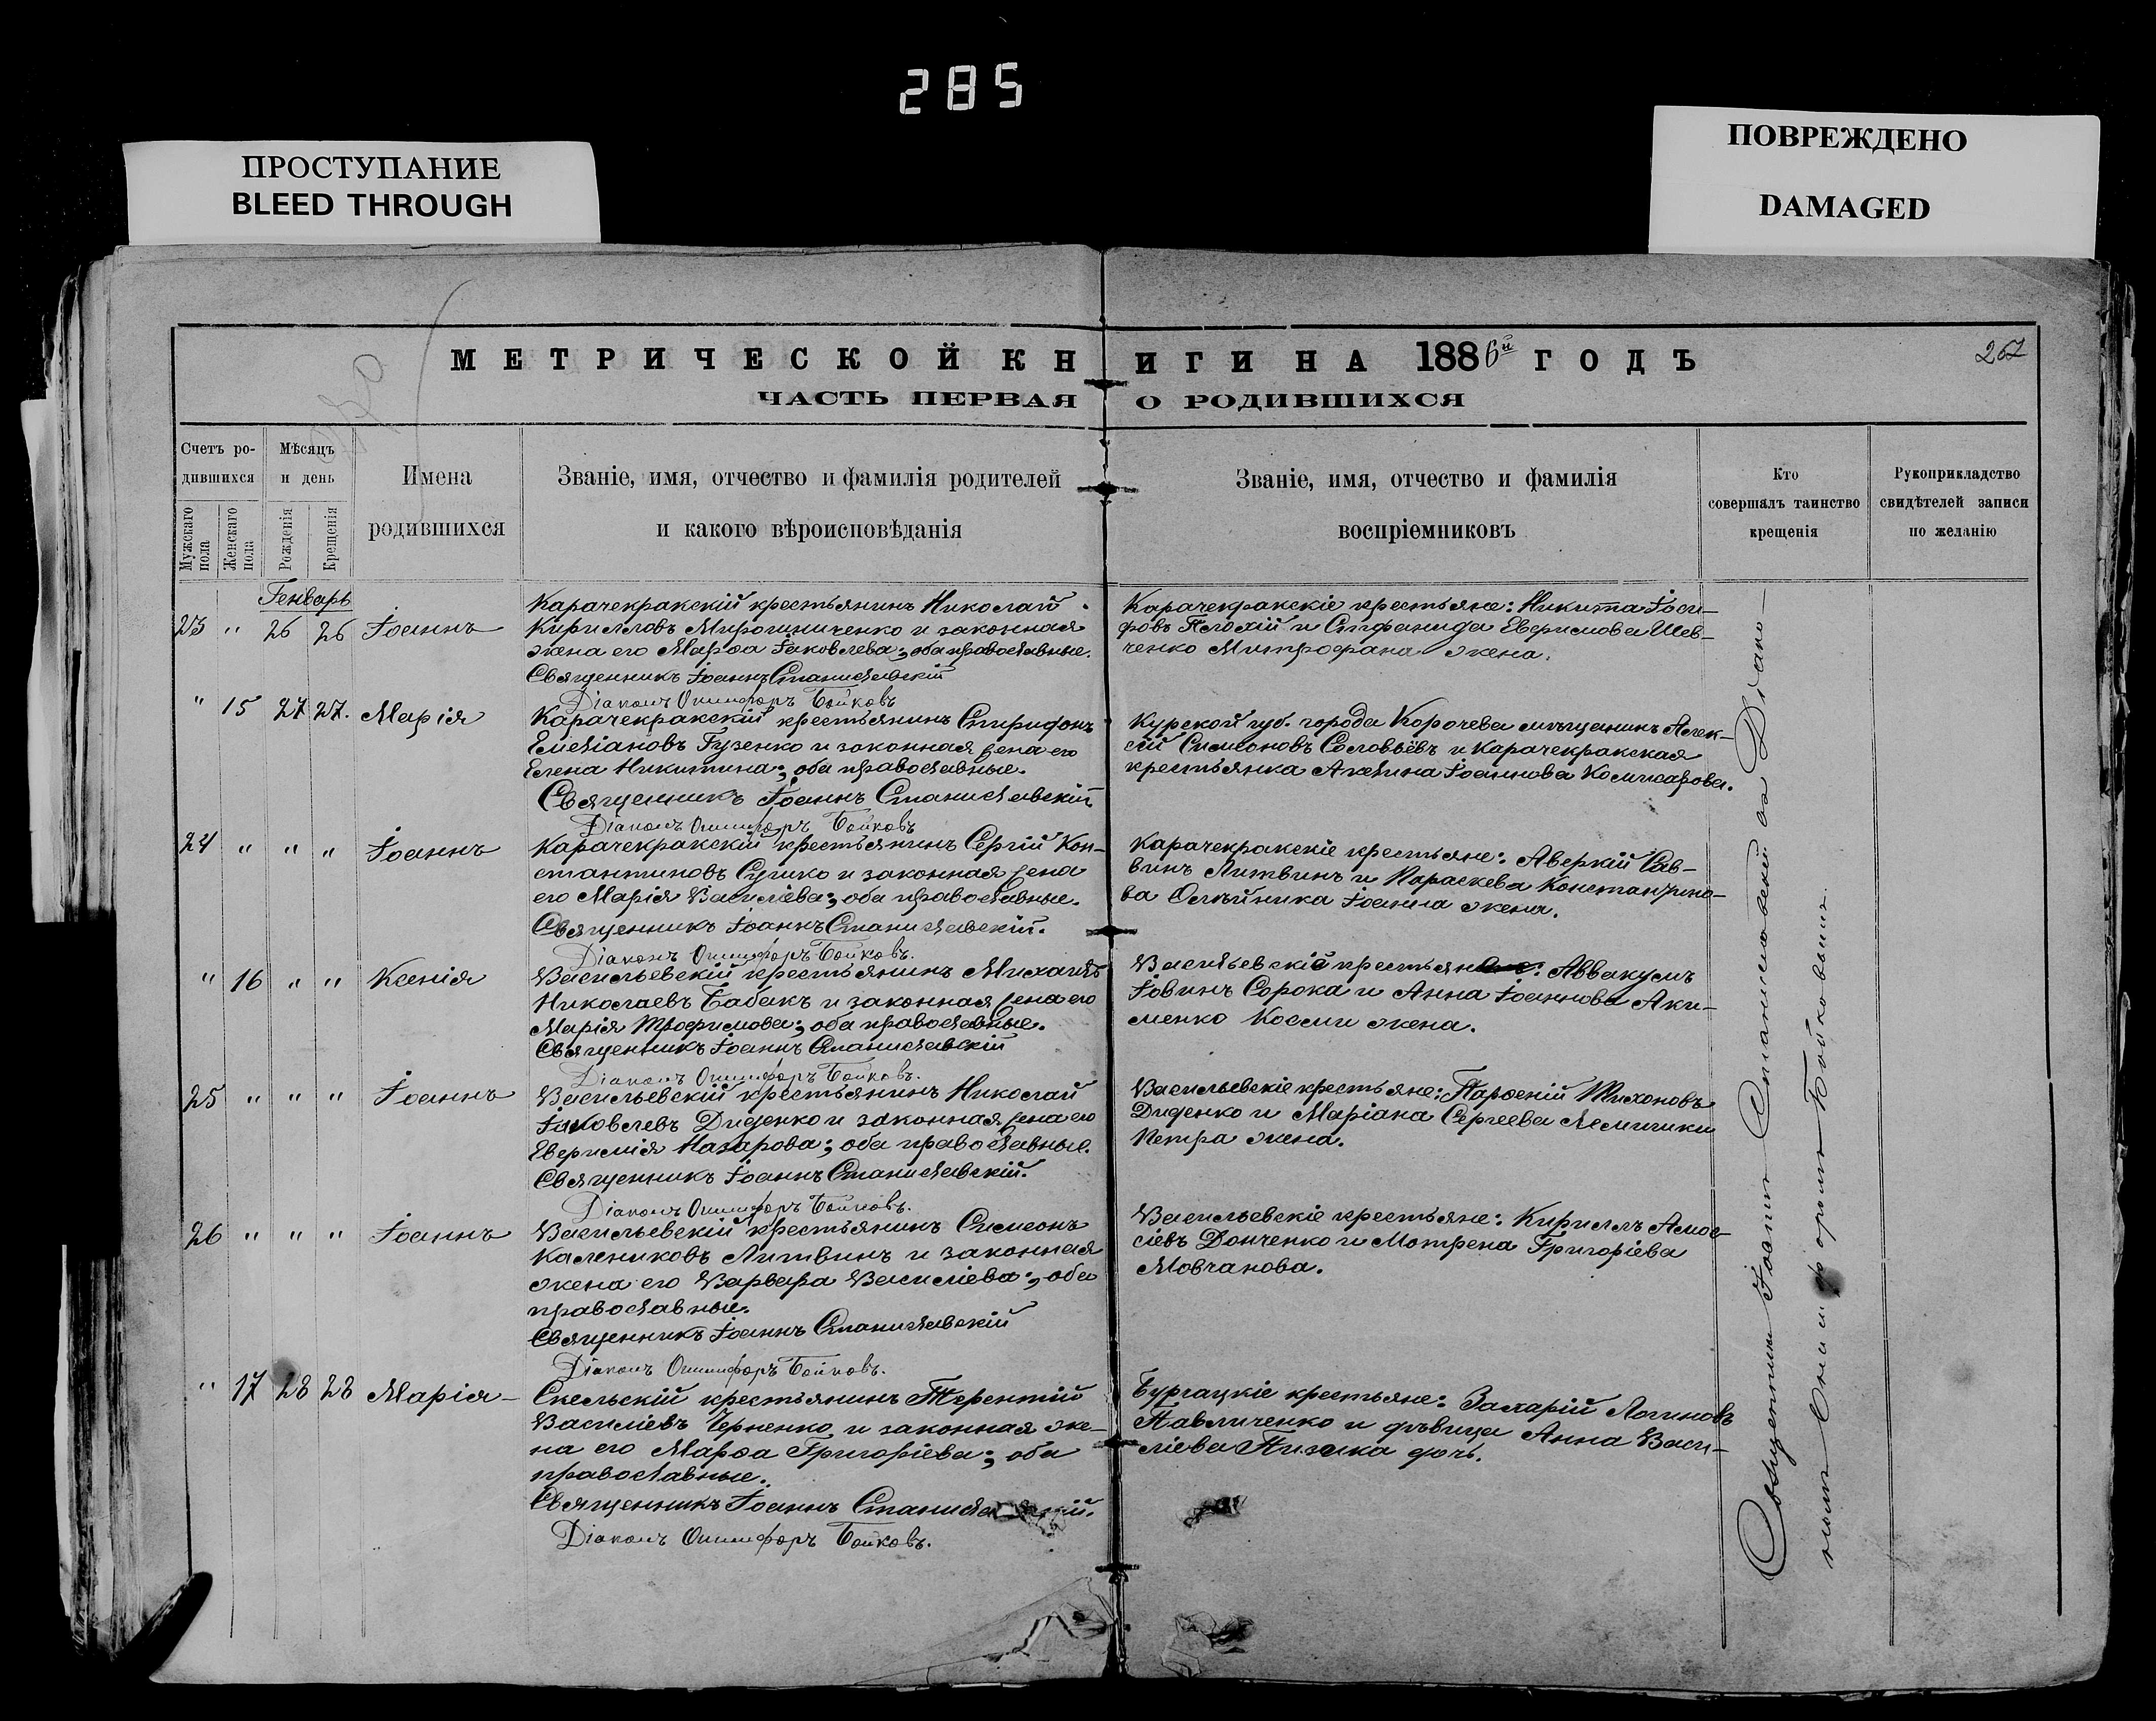 285
ПРОСТУПАНИЕ
BLEED THROUGH
ПОВРЕЖДЕНО
DAMAGED
МЕТРИЧЕСКОЙ КНИГИ НА 1886й ГОДЪ
267
ЧАСТЬ ПЕРВАЯ О РОДИВШИХСЯ
Счетъ ро-
дившихся
Мужскаго пола
Женскаго пола
Мѣсяцъ
и день
Рожденія
Крещенія
Имена
родившихся
Званіе, имя, отчество и фамилія родителей
и какого вѣроисповѣданія
Званіе, имя, отчество и фамилія
воспріемниковъ
Кто
совершалъ таинство
крещенія
Рукоприкладство
свидѣтелей записи
по желанію
Генварь
23 " 26 26 Іоаннъ
Карачекракскій крестьянинъ Николай
Кирилловъ Мирошниченко и законная
жена его Марѳа Іаковлева; оба православные.
Священникъ Іоаннъ Станиславскій
Діаконъ Онисифоръ Бойковъ
Карачекракскіе крестьяне: Никита Іоси-
фовъ Плохій и Стефанида Евфимова Шев-
ченко Митрофана жена.
" 15 27 27. Марія
Карачекракскій крестьянинъ Спиридонъ
Емеліановъ Гузенко и законная жена его
Елена Никитина; оба православные.
Священникъ Іоаннъ Станиславскій
Діаконъ Онисифоръ Бойковъ
Курской губ. города Корочева мѣщанинъ Алек-
сій Симеоновъ Соловьёвъ и Карачекракская
крестьянка Акилина Іоаннова Комисарова.
24 " " " Іоаннъ
Карачекракскій крестьянинъ Сергій Кон-
стантиновъ Сушко и законная жена
его Марія Василіева; оба православные.
Священникъ Іоаннъ Станиславскій.
Діаконъ Онисифоръ Бойковъ.
Карачекракскіе крестьяне: Аверкій Сав-
винъ Литвинъ и Параскева Константино-
ва Олейника Іоанна жена.
" 16 " " Ксенія
Васильевскій крестьянинъ Михаилъ
Николаевъ Бабакъ и законная жена его
Марія Трофимова; оба православные.
Священникъ Іоаннъ Станиславскій
Діаконъ Онисифоръ Бойковъ.
Васильевскіе крестьяне: Аввакумъ
Іовинъ Сорока и Анна Іоаннова Аки-
менко Космы жена.
25 " " " Іоаннъ
Васильевскій крестьянинъ Николай
Іаковлевъ Диденко и законная жена его
Евфимія Назарова; оба православные.
Священникъ Іоаннъ Станиславскій.
Діаконъ Онисифоръ Бойковъ.
Васильевскіе крестьяне: Парѳеній Тихоновъ
Диденко и Маріана Сергеева
Петра жена.
26 " " " Іоаннъ
Васильевскій крестьянинъ Симеонъ
Калениковъ Литвинъ и законная
жена его Варвара Василіева; оба
православные.
Священникъ Іоаннъ Станиславскій
Діаконъ Онисифоръ Бойковъ.
Васильевскіе крестьяне: Кириллъ Амос-
сіевъ Донченко и Мотрена Григоріева
Мовчанова.
" 17 28 28 Марія
Скельскій крестьянинъ Терентій
Василіевъ Черненко и законная же-
на его Марѳа Григоріева; оба
православные.
Священникъ Іоаннъ Станиславскій.
Діаконъ Онисифоръ Бойковъ.
Бургацкіе крестьяне: Захарій Логиновъ
Павличенко и дѣвица Анна Васи-
ліева дочь.
Священникъ Іоаннъ Станиславскій съ Діако-
номъ Онисифоромъ Бойковымъ.